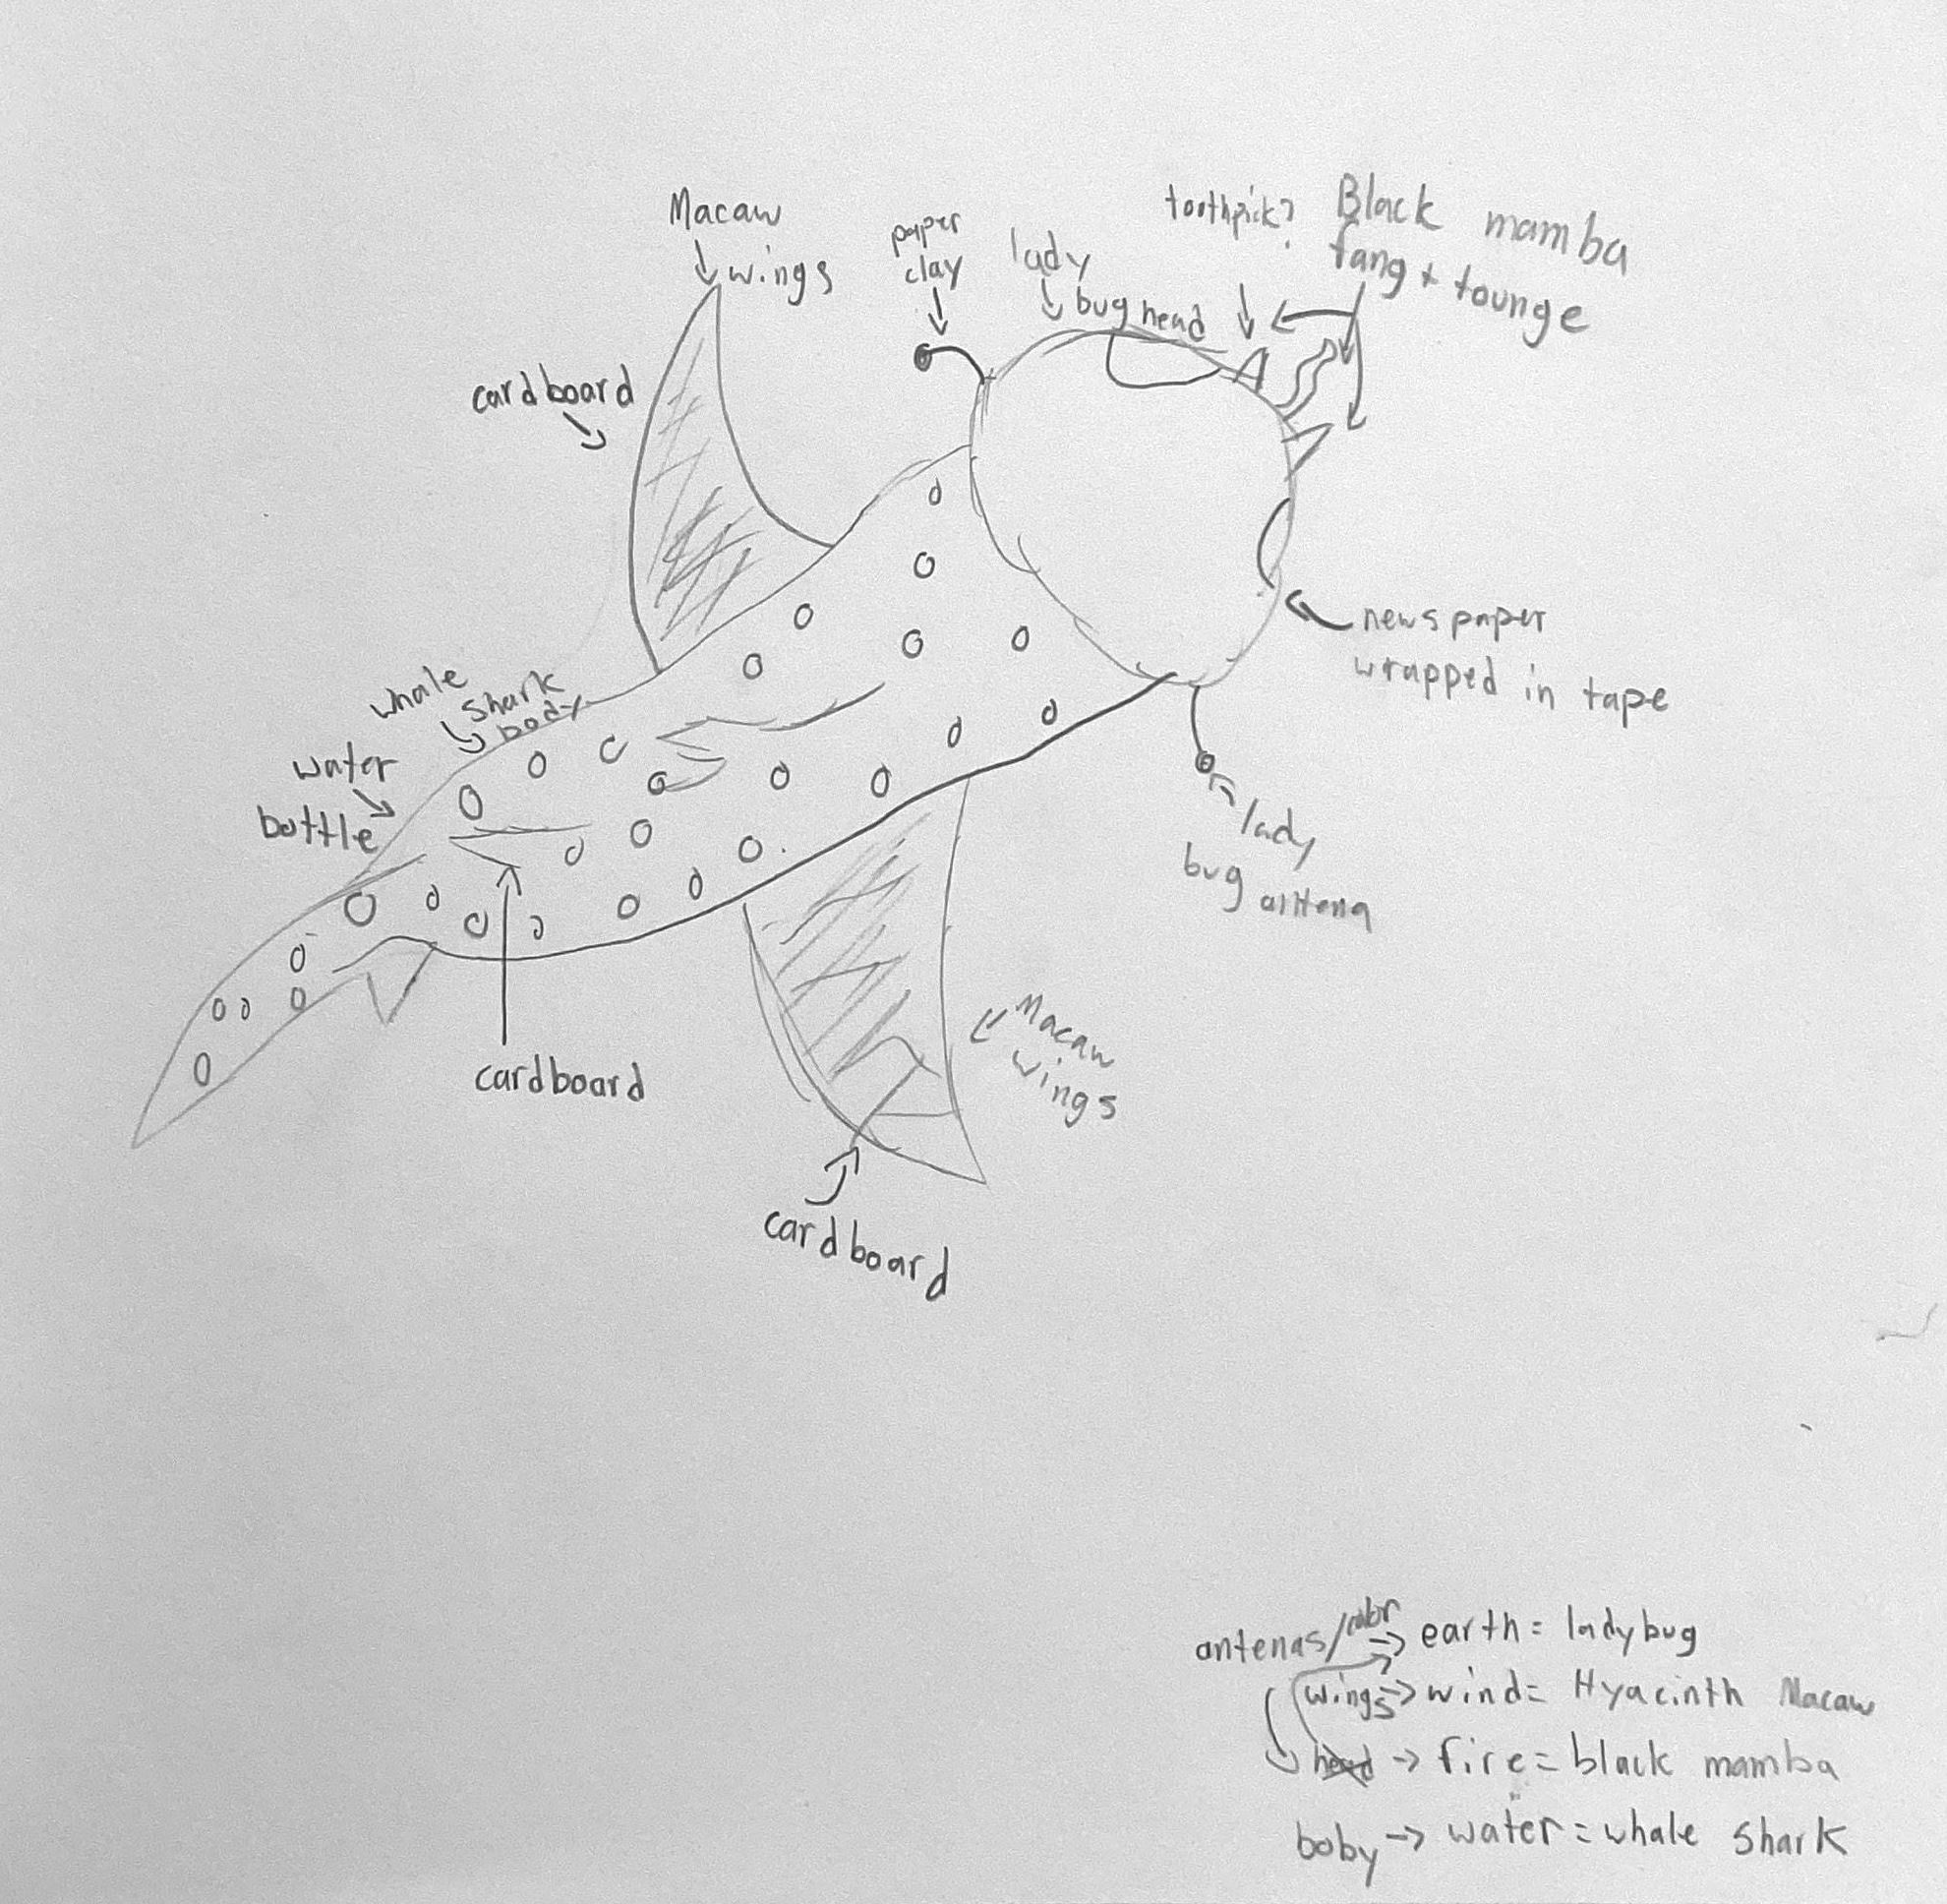 Macaw
wings
paper
clay
lady
bug head
toothpick?
Black mamba
fang + tounge
cardboard
newspaper
wrapped in tape
whale
shark
body
water
bottle
lady
bug antena
cardboard
Macaw
wings
cardboard
antenas/color → earth = ladybug
wings → wind = Hyacinth Macaw
head → fire = black mamba
boby → water = whale shark